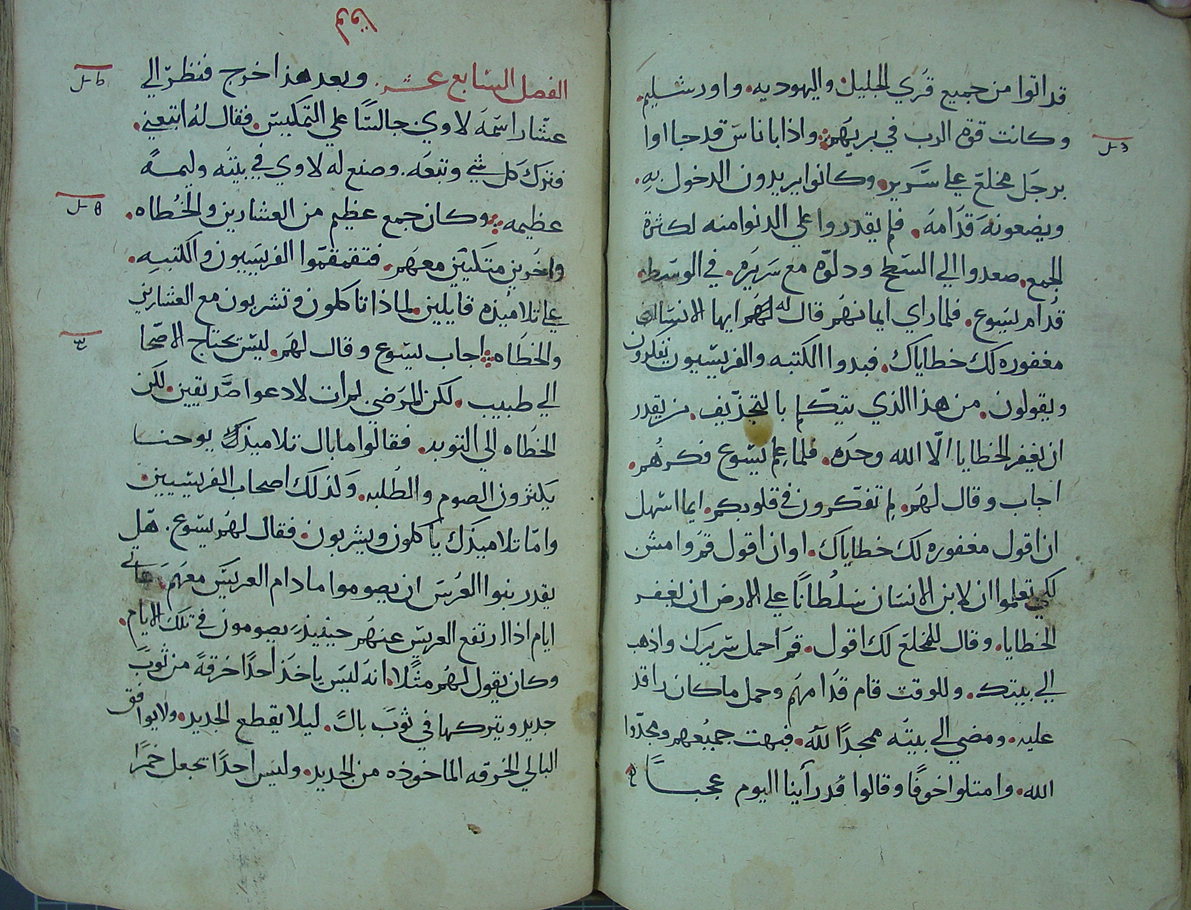 قد اتوا من جميع قري الجليل واليهوديه. واورشليم.
وكانت قوة الرب في بريهم. واذا باناس قد جااوا
برجل مخلع علي سرير. وكانوا يريدون الدخول به.
ويضعونه قدامه. فلم يقدروا علي الدنوا منه لكثرة
الجمع. صعدوا الي السطح ودلوه مع سريره. في الوسط.
قدام يسوع. فلما راي ايمانهم قال له ايها الانسان
مغفوره لك خطاياك. فبدوا الكتبه والفريسيون يفكرون
ويقولون. من هذا الذي يتكلم بالتجذيف. من يقدر
ان يغفر الخطايا الا الله وحده. فلما علم يسوع فكرهم.
اجاب وقال لهم. لم تفكرون في قلوبكم. ايما اسهل
ان اقول مغفوره لك خطاياك. او ان اقول قم وامش
لكي تعلموا ان لابن الانسان سلطانا علي الارض ان يغفر
الخطايا. وقال للمخلع لك اقول. قم احمل سريرك واذهب
الي بيتك. وللوقت قام قدامهم وحمل ما كان راقد
عليه. ومضي الي بيته ممجدا لله. فبهت جميعهم ومجدوا
الله. وامتلوا خوفا وقالوا قد راينا اليوم عجبا
لوقا
الفصل السابع عشر. وبعد هذا خرج فنظر الي
عشار اسمه لاوي جالسا علي التمكيس. فقال له اتبعني.
فترك كل شي وتبعه. وصنع له لاوي في بيته وليمه
عظيمه. وكان جمع عظيم من العشارين والخطاه.
واخرين متكيين معهم. فتقمقموا الفريسيون والكتبه.
علي تلاميذه قايلين. لماذا تاكلون وتشربون مع العشارين
والخطاه. اجاب يسوع وقال لهم. ليس يحتاج الاصحا
الي طبيب. لكن المرضي. لم ات لادعوا صديقين. لكن
الخطاه الي التوبه. فقالوا ما بال تلاميذ يوحنا
يكثرون الصوم والطلبه. وكذلك اصحاب الفريسيين
واما تلاميذك ياكلون ويشربون. فقال لهم يسوع. هل
يقدر بنوا العرس ان يصوموا ما دام العريس معهم. ستاتي
ايام اذا ارتفع العريس عنهم حينيذ يصومون في تلك الايام.
وكان يقول لهم مثلا. انه ليس ياخذ احدا خرقة من ثوب
جديد ويتركها في ثوب بال. ليلا يقطع الجديد. ولا يوافق
البالي الخرقه الماخوذه من الجديد. وليس احدا يجعل خمرا